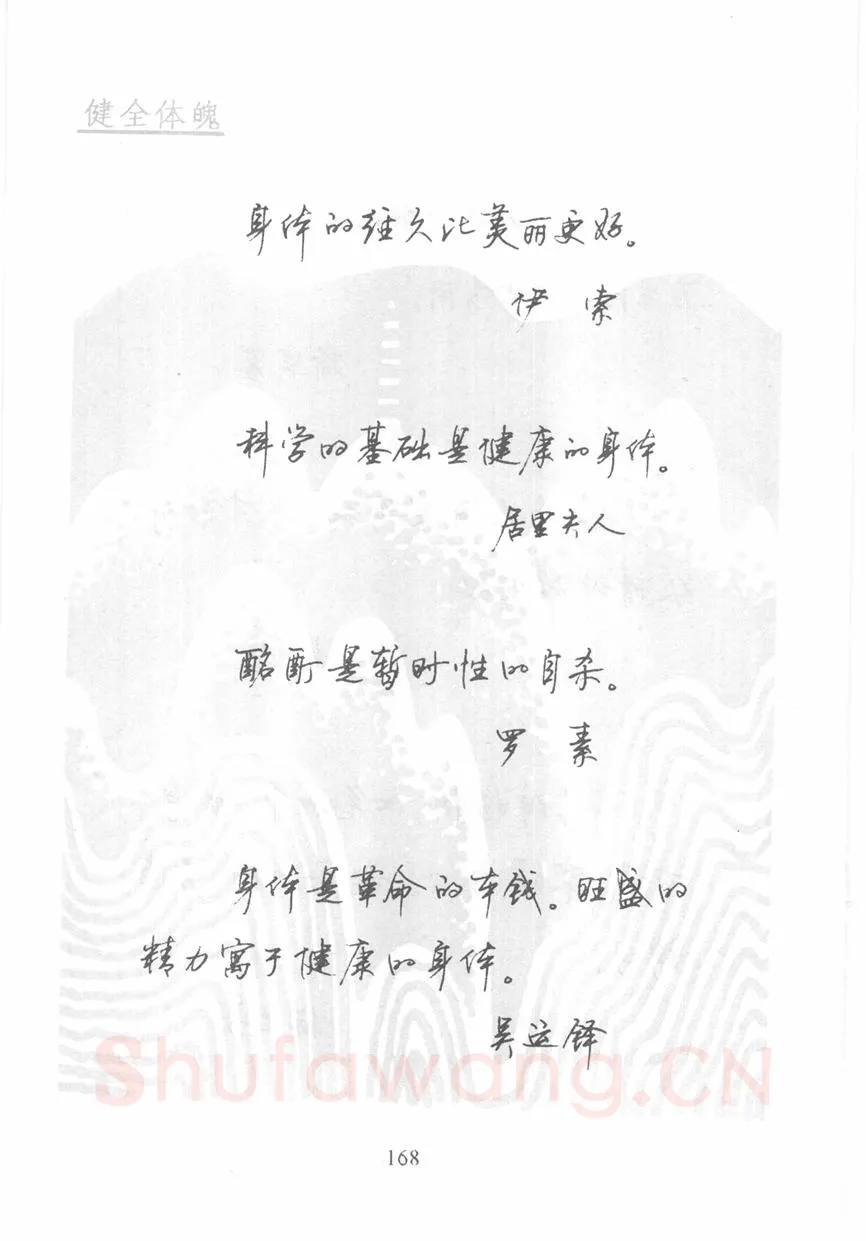 健全体魄
身体的经久比美丽更好。
伊 索
科学的基础是健康的身体。
居里夫人
酩酊是暂时性的自杀。
罗 素
身体是革命的本钱。旺盛的
精力寓于健康的身体。
吴运铎
Shufawang.CN
168